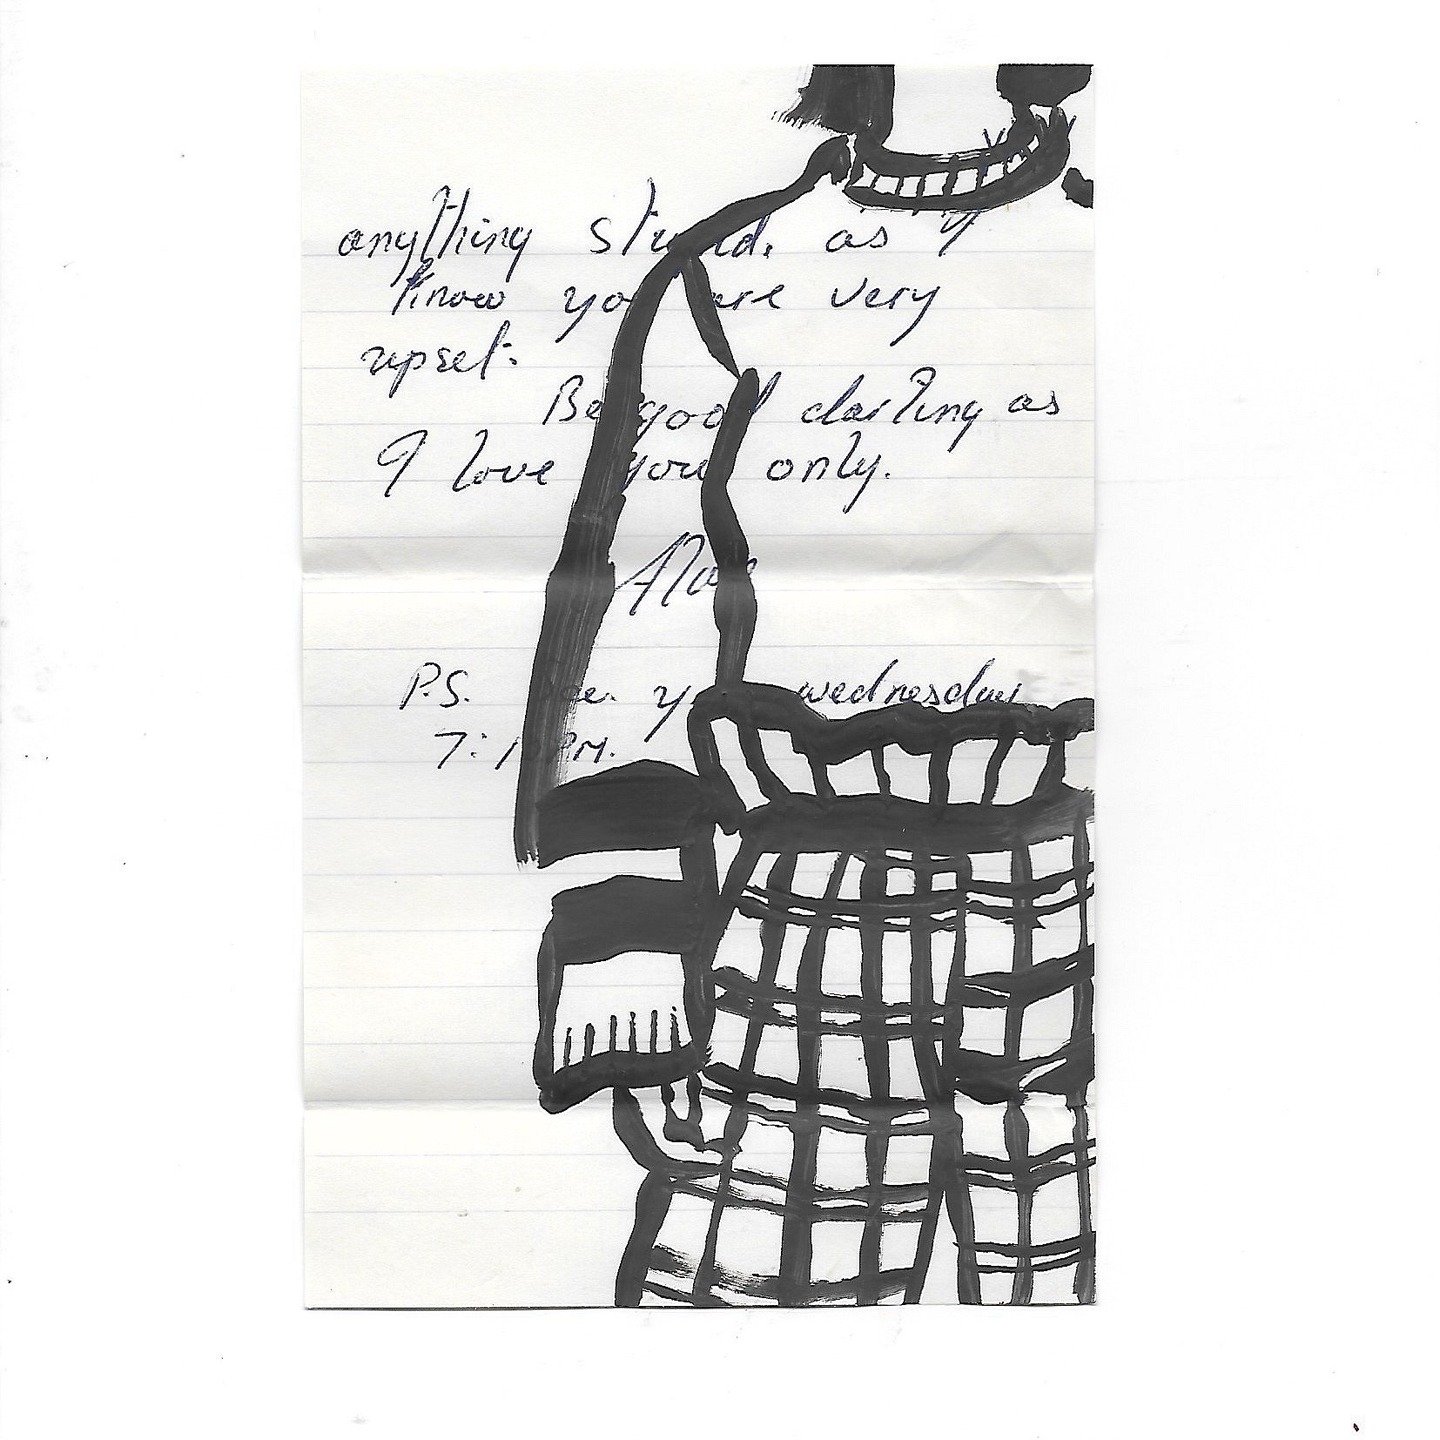 anything stupid. as I
know you are very
upset.
Be good darling as
I love you only.
P.S. See you wednesday
7:1 PM.